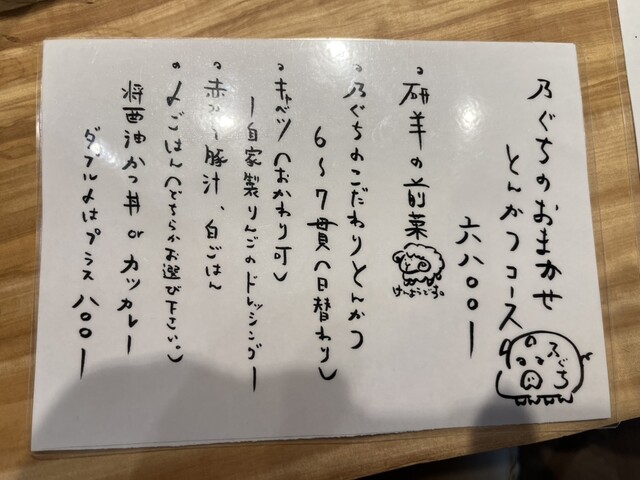 乃ぐちのおまかせ
とんかつコース
乃ぐち
六八〇〇ー
・研羊の前菜
けんようじゃ。
・乃ぐちのこだわりとんかつ
6〜7貫(日替わり)
・キャベツ(おかわり可)
ー自家製りんごのドレッシングー
・赤みそ豚汁、白ごはん
・〆ごはん(どちらかお選び下さい。)
将酉油かつ丼 or カツカレー
ダブル〆はプラス八〇〇ー